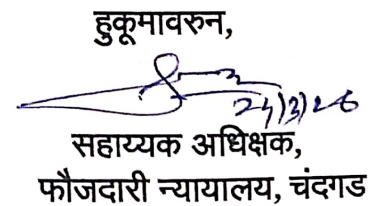 हुकूमावरुन,
सहाय्यक अधिक्षक,
फौजदारी न्यायालय, चंदगड